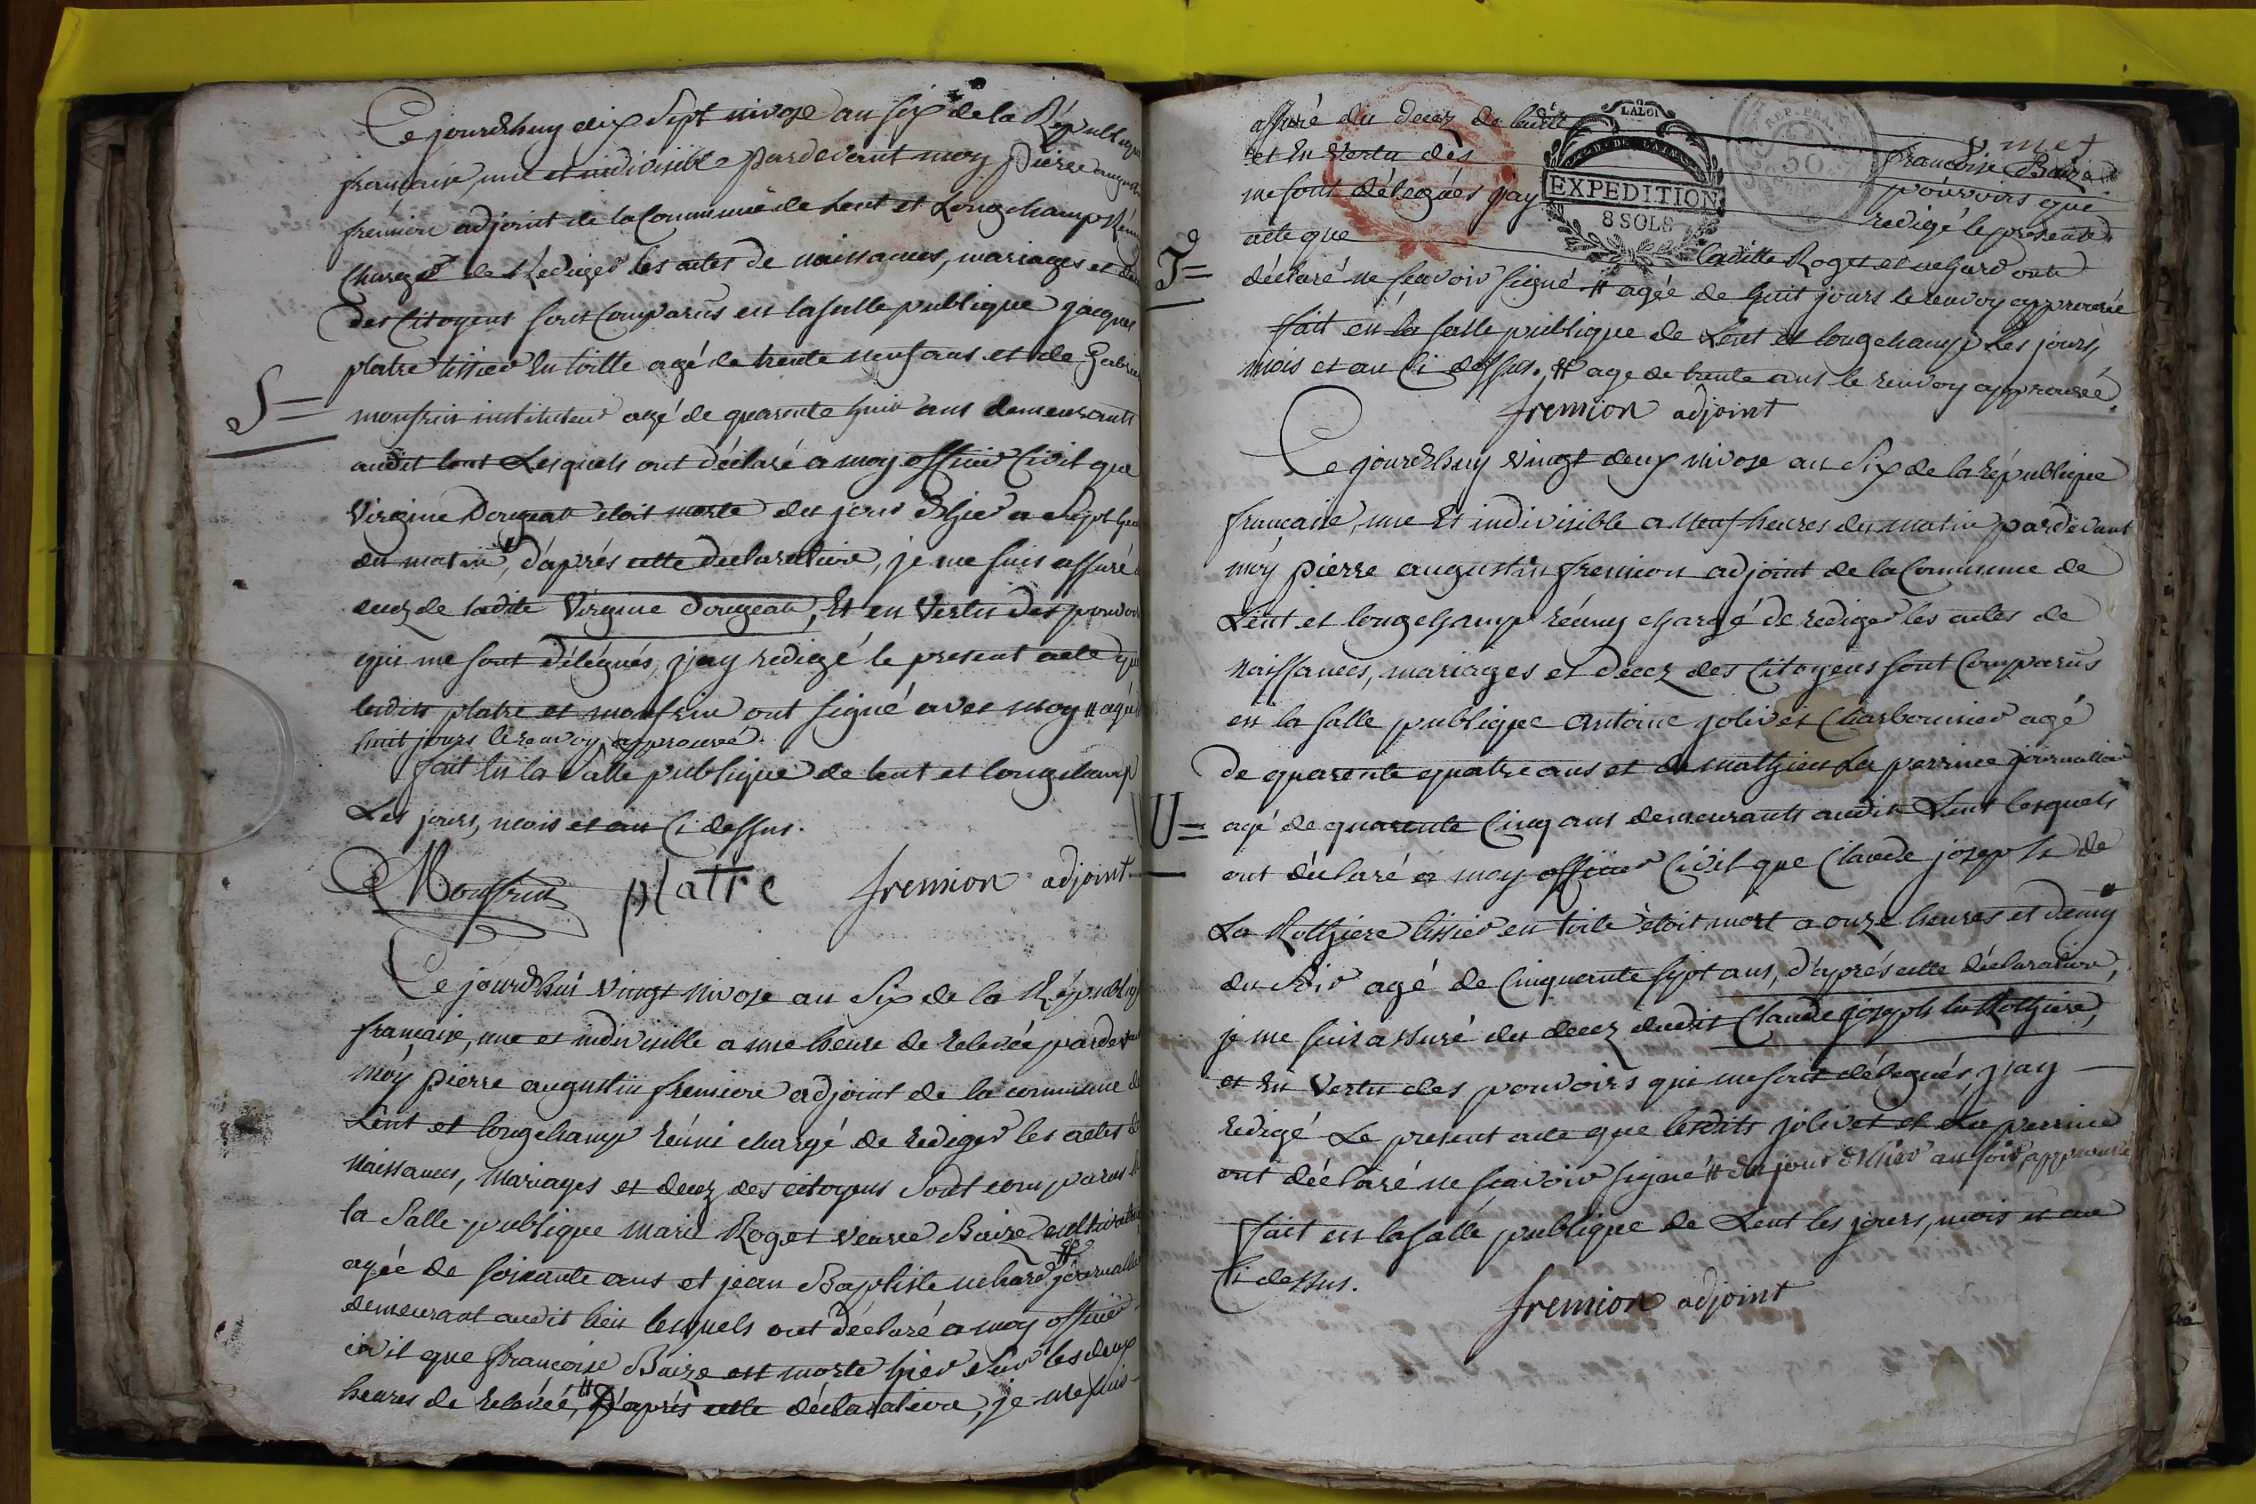 Ce jourd'huy dix Sept nivose an Six de la Républiq
française, une et indivisible pardevant moy pierre august
fremion adjoint de la Commune de Lent et Longchamp Réuni
Chargé de Rediger les actes de naissances, mariages et
des Citoyens sont Comparus en la salle publique jacques
platre tissier en toille agé de trente neuf ans et de Gabriel
S= monfrin instituteur agé de quarente huit ans demeurants
audit lent Lesquels ont déclaré a moy officier Civil que
Virginie Dougeat etoit morte du jour d'hier a Sept heur
du matin, d'aprés cette déclaration, je me suis assuré
decez de ladite Virginie Dougeat, Et en Vertu des pouvoir
qui me sont délegués, j'ay redigé le present acte que
lesdits platre et monfrin ont signé avec moy # agé
huit jours le renvoy approuvé.
fait en la Salle publique de lent et longchamp
Les jours, mois et an Ci dessus.
Monfrin platre fremion adjoint
Ce jourd'hui vingt nivose an Six de la Républiq
française, une et indivisible a une heure de relevée pardevant
moy pierre augustin fremion adjoint de la commune de
Lent et longchamp réuni chargé de rediger les actes de
Naissances, Mariages et decez des citoyens Sont comparus
la Salle publique marie Roget veuve Baize
agée de soixante ans et jean Baptiste # journallier
demeurant audit lieu lesquels ont déclaré a moy officier
civil que françoise Baize est morte hier Sur les deux
heures de relevée, # D'aprés cette déclaration, je me suis
assuré du decez de ladite françoise Baize
et En Vertu des pouvoirs qui
me sont délegués j'ay redigé le present
acte que ladite Roget et ont
T= déclaré ne sçavoir signé # agée de huit jours le renvoy approuvé
fait en la salle publique de Lent et longchamp Les jours,
mois et an Ci dessus. # age de trente ans le renvoy approuvé.
LA LOI
EXPEDITION
8 SOLS
REP. FRA.
50
fremion adjoint
Ce jourd'huy vingt deux nivose an Six de la république
française, une Et indivisible a neuf heures du matin pardevant
moy pierre augustin fremion adjoint de la Commune de
Lent et longchamp réuny chargé de rediger les actes de
Naissances, mariages et decez des Citoyens sont Comparus
en la salle publique antoine jolivet Charbonnier agé
de quarente quatre ans et de mathieu La perrine journallier
U= agé de quarente Cinq ans demeurants audit Lent lesquels
ont déclaré a moy officier Civil que Claude joseph de
La Rothiere tissier en toile etoit mort a onze heures et demy
du Soir agé de Cinquente sept ans, d'aprés cette déclaration,
je me suis assuré du decez dudit Claude joseph la Rothiere,
et En Vertu des pouvoirs qui me sont délegués j'ay
redigé Le present acte que lesdits jolivet et La perrine
ont déclaré ne sçavoir signé # du jour d'hier au soir, approuvé
fait en la salle publique de Lent les jours, mois et an
Ci dessus.
fremion adjoint